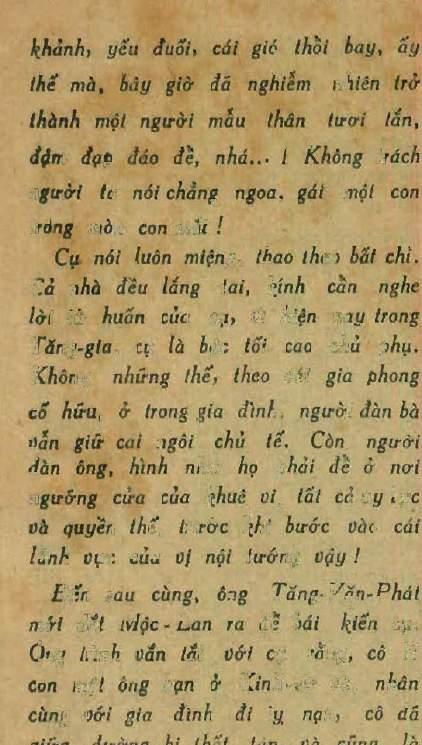 khảnh, yếu đuối, cái gió thồi bay, ấy
thế mà, bây giờ đã nghiễm nhiên trở
thành một người mẫu thân tươi tắn,
đậm đạp đáo đề, nhá... ! Không trách
người ta nói chẳng ngoa. gái một con
trông mòn con mắt !
Cụ nói luôn miệng thao thao bất chỉ.
Cả nhà đều lắng tai, kính cần nghe
lời huấn của cụ, vì hiện nay trong
Tăng-gia cụ là bậc tối cao chủ phụ.
Không những thế, theo gia phong
cố hữu, ở trong gia đình, người đàn bà
vẫn giữ cái ngôi chủ tể. Còn người
đàn ông, hình như họ phải đề ở nơi
ngưỡng cửa của khuê vi tất cả uy lực
và quyền thế trước khi bước vào cái
lãnh vực của vị nội tướng vậy !
Đến sau cùng, ông Tăng-Văn-Phát
mới dắt Mộc-Lan ra để bái kiến cụ.
Ông trình vắn tắt với cụ rằng, cô là
con một ông bạn ở nhân
cùng với gia đình đi nạn, cô đã
giữa đường bị thất tán và cũng là